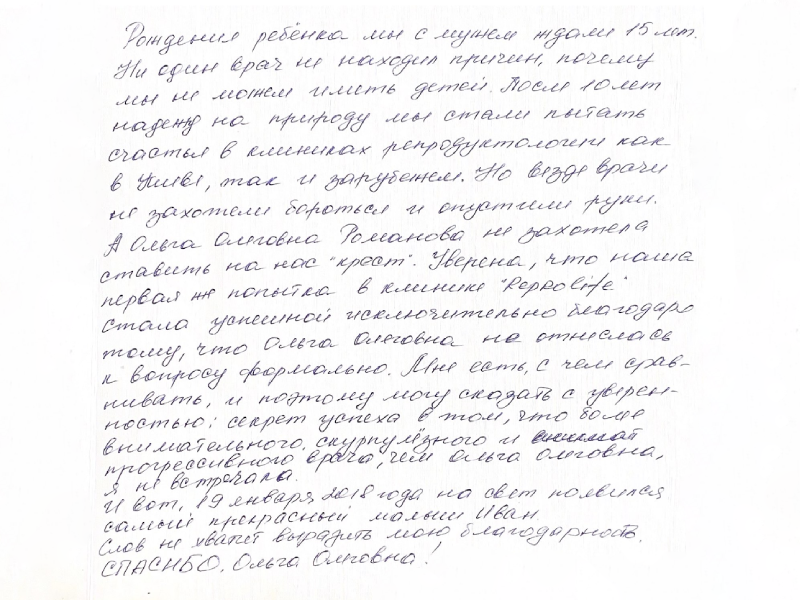 Рождения ребёнка мы с мужем ждали 15 лет.
Ни один врач не находил причин, почему
мы не можем иметь детей. После 10 лет
надежд на природу мы стали пытать
счастья в клиниках репродуктологии как
в Киеве, так и зарубежем. Но везде врачи
не захотели бороться и опустили руки.
А Ольга Олеговна Романова не захотела
ставить на нас "крест". Уверена, что наша
первая же попытка в клинике "Reprolife"
стала успешной исключительно благодаря
тому, что Ольга Олеговна не отнеслась
к вопросу формально. Мне есть, с чем срав-
нивать, и поэтому могу сказать с уверен-
ностью: секрет успеха в том, что более
внимательного, скурпулёзного и
прогрессивного врача, чем Ольга Олеговна,
я не встречала.
И вот, 19 января 2018 года на свет появился
самый прекрасный малыш Иван.
Слов не хватит выразить мою благодарность.
СПАСИБО, Ольга Олеговна!